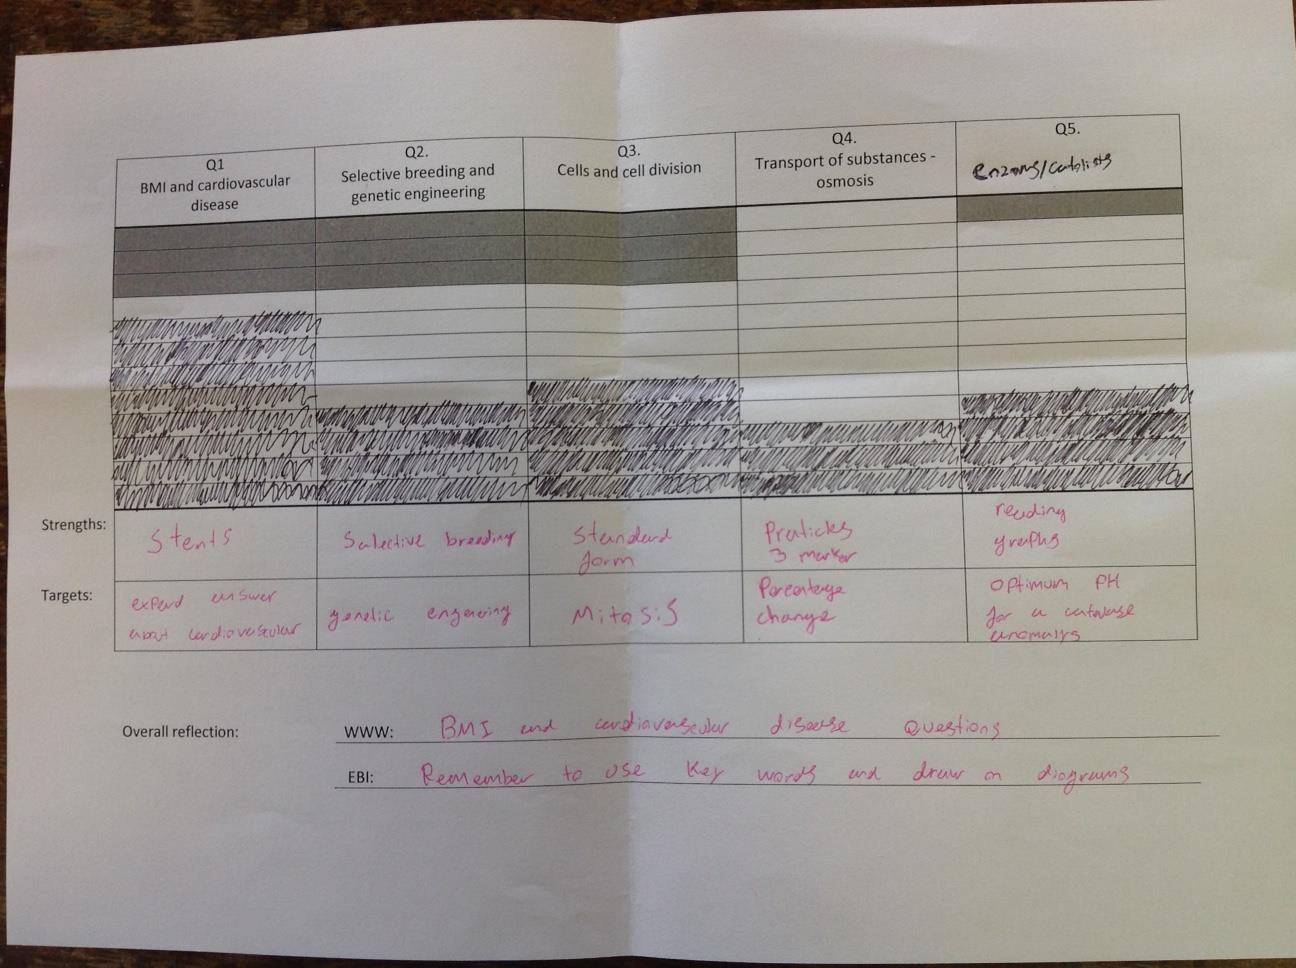 Q1
BMI and cardiovascular
disease
Q2.
Selective breeding and
genetic engineering
Q3.
Cells and cell division
Q4.
Transport of substances -
osmosis
Q5.
enzoms/catalists
Strengths:
Stents
Salective breeding
Standard
form
Praticles
3 marker
reading
graphs
Targets:
expand answer
about cardiovascular
genetic engenering
Mitosis
Percentage
change
optimum PH
for a catalase
anomalys
Overall reflection:
WWW: BMI and cardiovascular disease questions
EBI: Remember to use key words and draw on diagrams